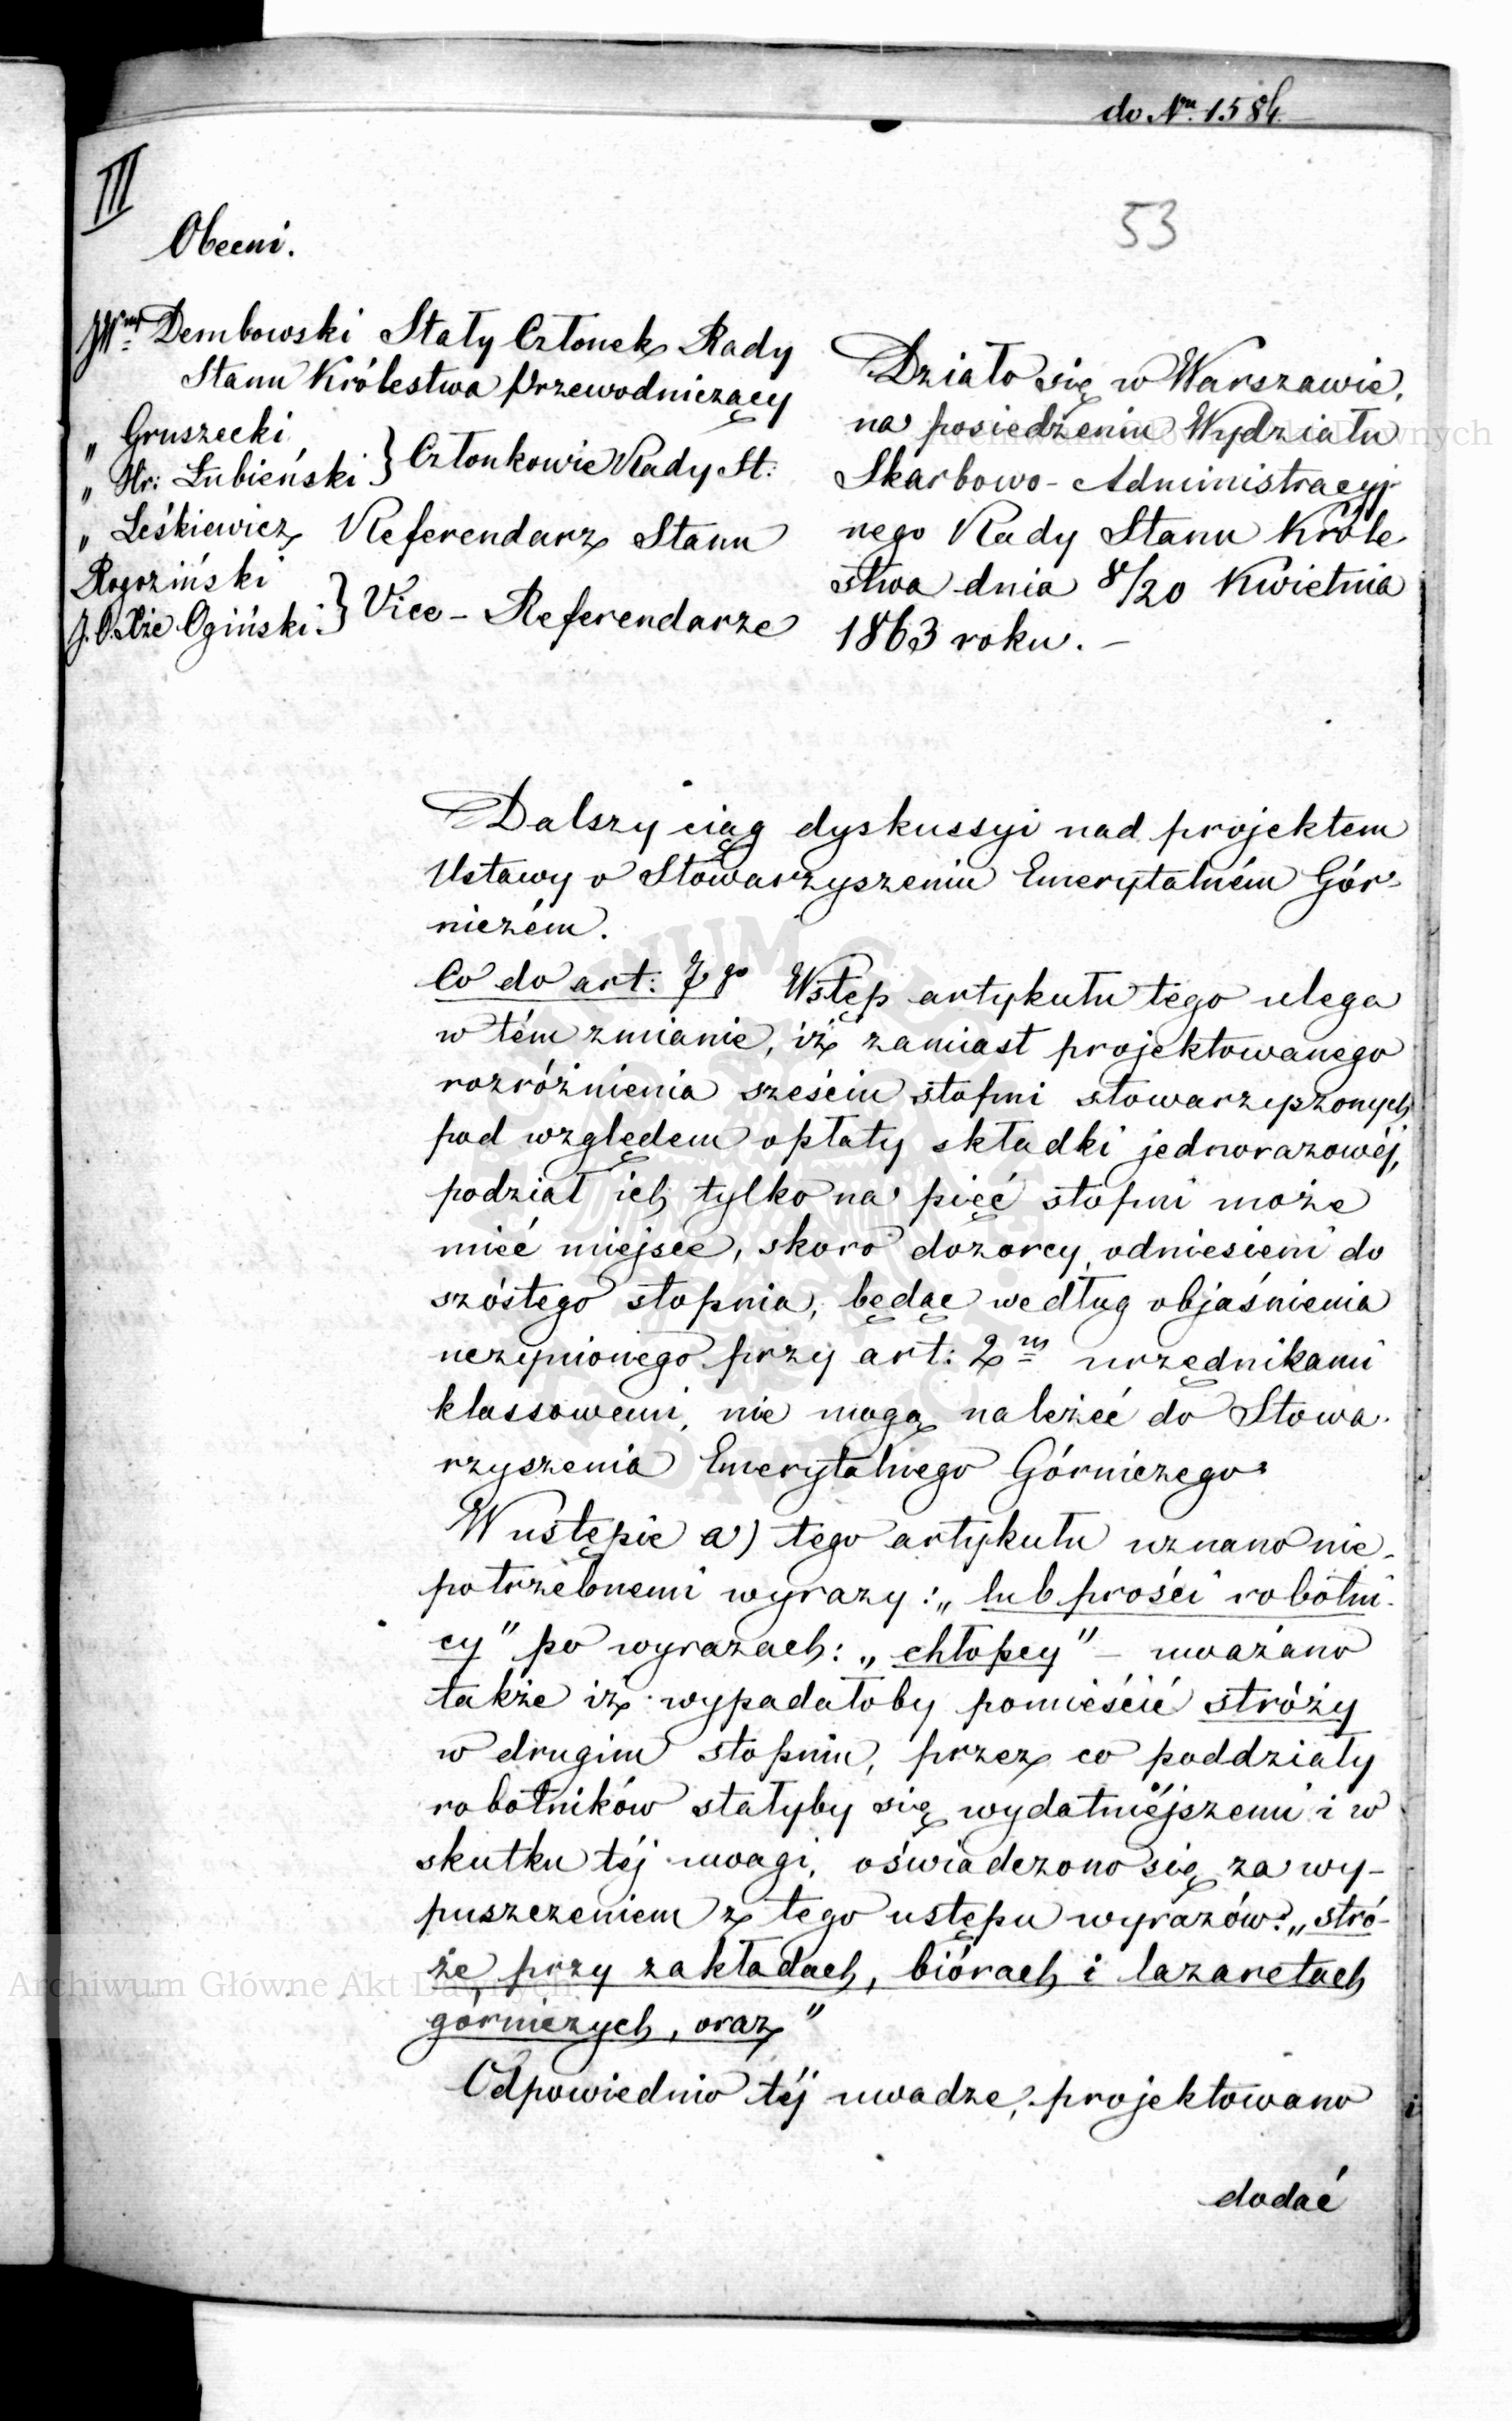 do Nru 1584.
III
53
Obecni.
JWny Dembowski Stały Członek Rady
Stanu Królestwa Przewodniczący
„ Gruszecki
„ Hr: Łubieński } Członkowie Rady St:
„ Leśkiewicz Referendarz Stanu
Rogoziński
J.O. Xże Ogiński } Vice-Referendarze
Działo się w Warszawie,
na posiedzeniu Wydziału
Skarbowo-Administracyj-
nego Rady Stanu Króle
stwa dnia 8/20 Kwietnia
1863 roku. —
Dalszy ciąg dyskussyi nad projektem
Ustawy o Stowarzyszeniu Emerytalném Gór-
niczém.
Co do art: 7go Wstęp artykułu tego ulega
w tém zmianie, iż zamiast projektowanego
rozróżnienia sześciu stopni stowarzyszonych
pod względem opłaty składki jednorazowéj,
podział ich tylko na pięć stopni może
mieć miejsce, skoro dozorcy, odniesieni do
szóstego stopnia, będąc według objaśnienia
uczynionego przy art: 2m urzędnikami
klassowemi, nie mogą należeć do Stowa-
rzyszenia Emerytalnego Górniczego.
W ustępie a) tego artykułu uznano nie-
potrzebnemi wyrazy: „lub prości robotni-
cy" po wyrazach: „chłopcy" – uważano
także iż wypadałoby pomieścić stróży
w drugim stopniu, przez co poddziały
robotników stałyby się wydatniéjszemi i w
skutku téj uwagi, oświadczono się za wy-
puszczeniem z tego ustępu wyrazów: „stró-
że przy zakładach, biórach i lazaretach
górniczych, oraz"
Odpowiednio téj uwadze, projektowano
dodać
Archiwum Główne Akt Dawnych